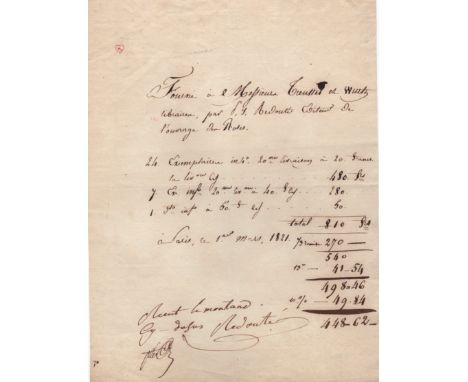 Fourni à Messieurs Treuttel et Wurtz
libraires, par P. J. Redouté Editeur de
l'ouvrage des Roses.
24 Exemplaires in 4° 20me livraison à 20. francs
480. fs
7 20me à 40 fs 280.
1 à 50. fs 50.
total 810 fs
à Paris, ce 1er mars, 1821. 270 —
540
41 - 54
498 - 46
49 - 84
448 - 62 -
Reçu le montant
Cy dessus Redouté